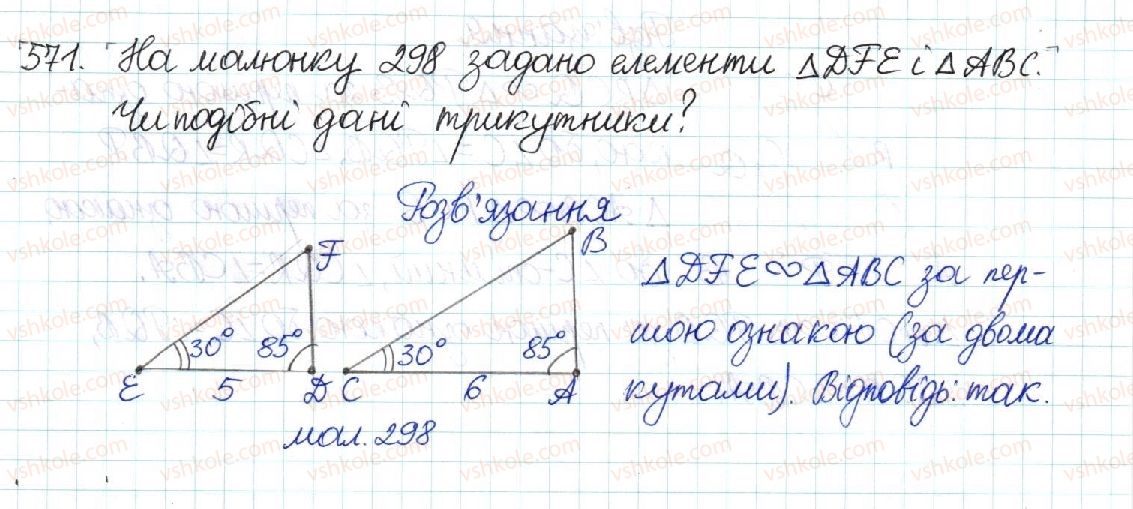 571. На малюнку 298 задано елементи △DFE і △ABC.
Чи подібні дані трикутники?
Розв'язання
F
B
30° 85°
30° 85°
E 5 D C 6 A
мал. 298
△DFE∞△ABC за пер-
шою ознакою (за двома
кутами). Відповідь: так.
vshkole.com